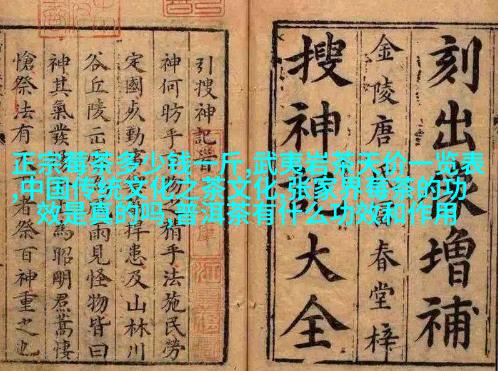 正宗莓茶多少钱一斤,武夷岩茶天价一览表
,中国传统文化之茶文化,张家界莓茶的功
效是真的吗,普洱茶有什么功效和作用
刻出增補
金陵唐春堂梓
搜神大全
引搜神記
神何昉乎手法施民勞
定國捍患及山林川
谷丘陵雨見怪物皆曰
神其氣發昭明焄蒿悽
愴祭法有者祭百神重之也